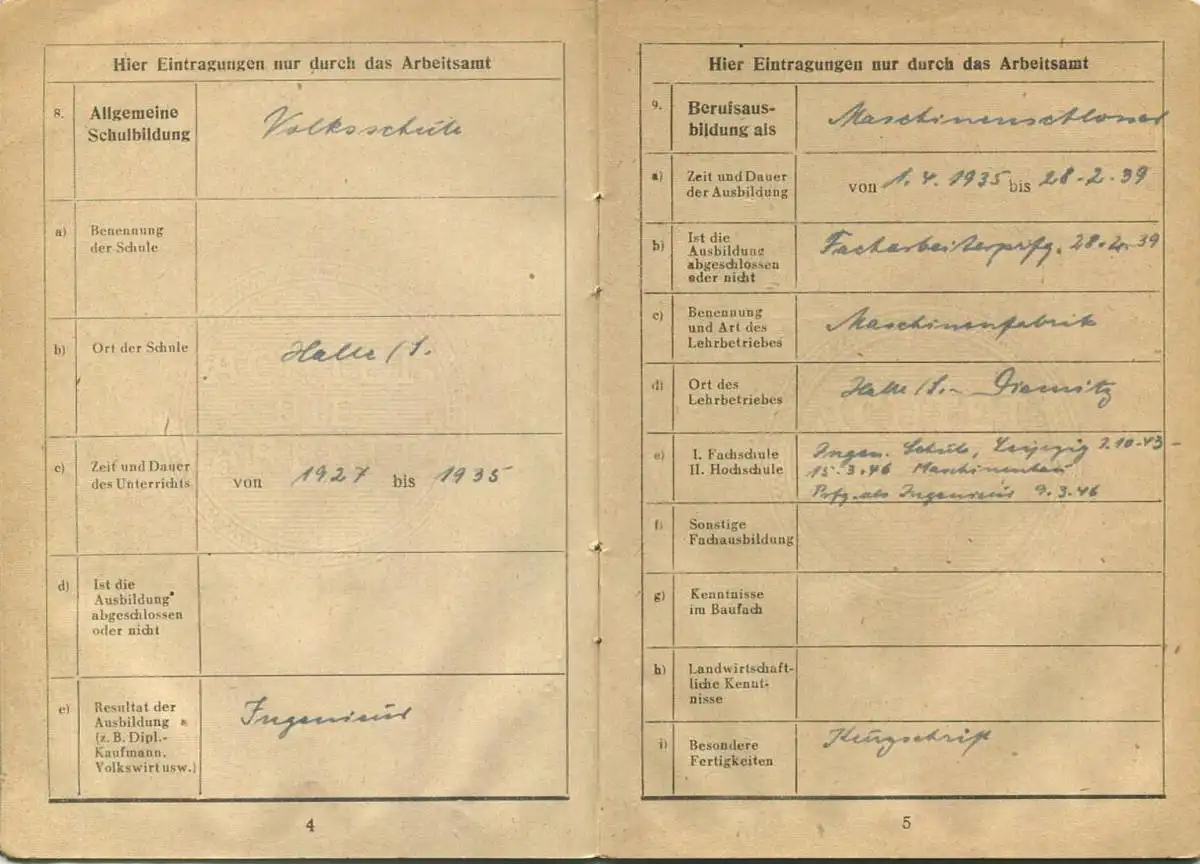 Hier Eintragungen nur durch das Arbeitsamt
8. Allgemeine
Schulbildung
Volksschule
a) Benennung
der Schule
b) Ort der Schule
Halle/S.
c) Zeit und Dauer
des Unterrichts
von 1927 bis 1935
d) Ist die
Ausbildung
abgeschlossen
oder nicht
e) Resultat der
Ausbildung
(z. B. Dipl.-
Kaufmann,
Volkswirt usw.)
Ingenieur
4
Hier Eintragungen nur durch das Arbeitsamt
9. Berufsaus-
bildung als
Maschinenschlosser
a) Zeit und Dauer
der Ausbildung
von 1. 4. 1935 bis 28-2-39
b) Ist die
Ausbildung
abgeschlossen
oder nicht
Facharbeiterprfg. 28.2.39
c) Benennung
und Art des
Lehrbetriebes
Maschinenfabrik
d) Ort des
Lehrbetriebes
Halle/S.- Diemitz
e) I. Fachschule
II. Hochschule
Ingen. Schule, Leipzig 7.10-43-
15-3.46 Maschinenbau
Prfg. als Ingenieur 9.3.46
f) Sonstige
Fachausbildung
g) Kenntnisse
im Baufach
h) Landwirtschaft-
liche Kennt-
nisse
i) Besondere
Fertigkeiten
Kurzschrift
5